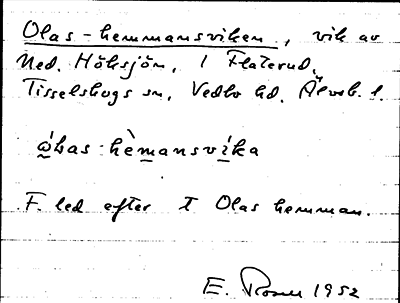 Olas-hemmansviken, vik av
Ned. Höksjön, i Flaterud,
Tisselskogs sn, Vedbo hd. Älvsb. l.
ólas-hèmansvíka
F. led efter t Olas hemman.
E. Rosen 1952